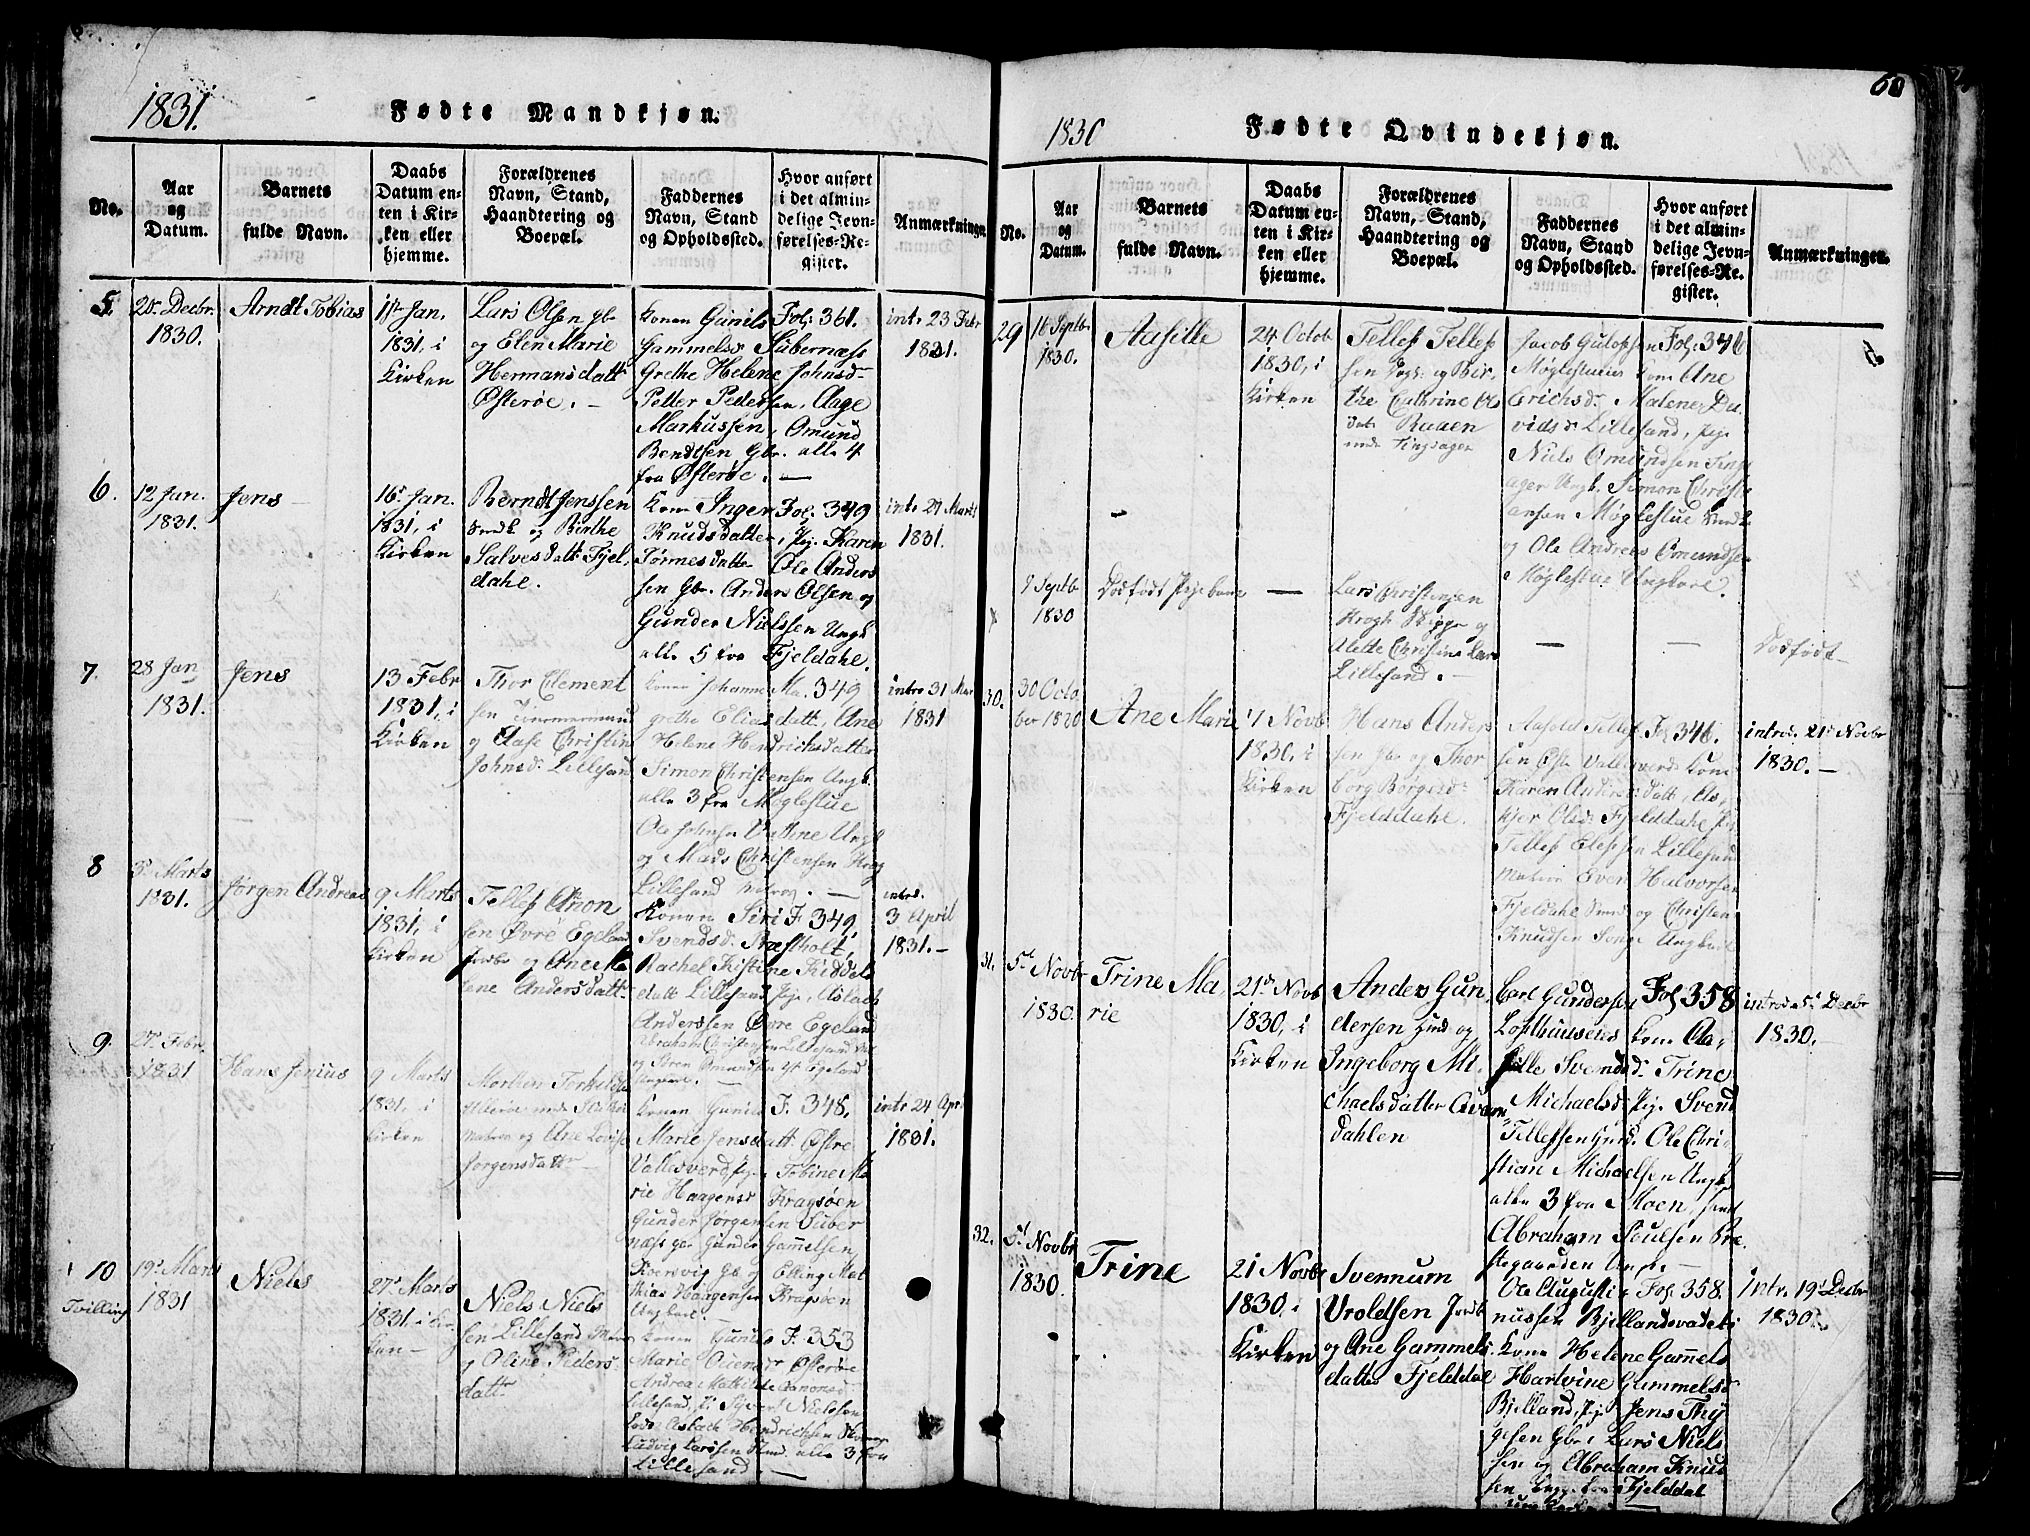 1831.
Fødte Mandkjøn.
No.
Aar og Datum.
Barnets fulde Navn.
Daabs Datum enten i Kirken eller hjemme.
Forældrenes Navn, Stand, Haandtering og Boepæl.
Faddernes Navn, Stand og Opholdssted.
Hvor anført i det almindelige Jevnførelses-Register.
Anmærkninger.
5.
Decbr.
1830.
Arndt Tobias
Jan.
1831, i
Kirken
Lars Olsen gbr
og Elen Marie
Hermansdatt
Østerøe. –
Konen Gunild
Gammelsd Sübernæss
Grethe Helene Johnsd
Petter Pedersen, Aage
Markussen, Omund
Bendtsen Gbr. alle 4
fra Østerøe. –
Fol. 361.
intr 23 Febr
1831.
6.
12 Jan.
1831.
Jens –
16 Jan.
1831, i
Kirken
Berndt Jenssen
og Birthe
Salvesdatt Fjel
dahl.
Kone Inger
Knudsdatter, Pige Karen
Tørresdatter Ole Anders
sen Gbr. Anders Olsen og
Gunder Nielssen Ungk
alle 5 fra Fjeldahl.
Fol. 349
intr 27 Marts
1831.
7.
28 Jan
1831.
Jens
13 Febr
1831, i
Kirken
Thor Clement
sen Tømmermand
og Aase Christin
Johnsd. Lillesand
Konen Johanne Ma
grethe Eliasdatt, Ane
Helene Hendrichsdatter
Simon Christensen Ungk.
alle 3 fra Møglestue
Ole Johnsen Vattene Ungk
og Mads Christensen Krog
Lillesand Matros. –
349
intro 31 Mar
1831
8
Marts
1831.
Jørgen Andreas
9 Marts
1831, i
Kirken
Tellef Anon
sen Øvre Egeland
og Ane
lene Andersdatt.
Konen Siri
Svendsd. Præstholt,
Rachel Kistine Kiddels
datt Lillesand Pige, Aslach
Anderssen Øvre Egeland
Abraham Christensen Lillesand
og Søren Omundsen Egeland
Ungkarl. –
F. 349,
introd.
3 April
1831. –
9
27 Febr.
1831
Hans Jenius
9 Marts
1831. i
Kirken
Morten Torkilds
Matros og Ane Lovise
Jørgensdatt
Konen Gunild
Marie Jensdatt. Østre
Vallesverd Pige, Tobine Ma
rie Haagensd Kragsøen
Gunder Jørgensen Süber
næss Gunder Gammelsen
Koersvig Gb. Elling Mat
thias Haagensen Kragsøen
Ungkarl. –
F. 348,
intr 24 Apr
1831.
10
Tvilling
19 Marts
1831
Niels
27 Marts
1831. i Kir
ken –
Niels Niels
sen Lillesand
og Oline Peders
datt
Konen Gunild
Marie Østerøe
Andrea Mathilde Aanonsd
Lillesand, Nielssen
Aslach Hendrichsen
Ludvig Larssen alle 3 fra
Lillesand. –
F. 353
60
1830
Fødte Qvindekjøn.
No.
Aar og Datum.
Barnets fulde Navn.
Daabs Datum enten i Kirken eller hjemme.
Forældrenes Navn, Stand, Haandtering og Boepæl.
Faddernes Navn, Stand og Opholdssted.
Hvor anført i det almindelige Jevnførelses-Register.
Anmærkninger.
29
16 Septbr
1830.
Aasille
24 Octob
1830, i
Kirken
Tellef Tellef
sen og Bir
the Cathrine
Tingsager
Jacob Gulofsen
Møglestue, Kone Ane
Erichsd. Malene Da
vidsd Lillesand, Pige
Niels Omundsen Tings
ager Ungk. Simon Christi
ansen Møglestue
og Ole Andreas Omundsen
Møglestue Ungkarl.
Fol. 346
Septb
1830
Dødfødt Pigebarn
–
Lars Christensen
Krogh Skipper og
Alette Christine Lars
Lillesand. –
–
–
Dødfødt
30.
30 Octo
ber 1830
Ane Marie
7 Novb
1830, i
Kirken
Hans Anders
sen Gbr og Thor
borg Børgesd.
Fjelddahl.
Aasold Tellef
sen Østre Vallesverd Kone
Karen Andersdatt, As
kjer Olsd. Fjelddahl Pige
Tellef Elefsen Lillesand
Matros Even Halvorsen
Fjeldahl og Christen
Knudsen Songe Ungkarl
F. 346.
introd. 21 Novbr
1830. –
31.
5 Novbr
1830.
Trine Ma
rie
21 Novb
1830, i
Kirken
Anders Gun
dersen Huusd og
Ingeborg Mi
chaelsdatter Qvan
dahlen
Carl Gundersen
Lofthuuseies Kone Aa
sille Svendsd. Trine
Michaelsd. Pige. Svend
Tellefsen Huusd. Ole Chri
stian Michaelsen Ungk.
alle 3 fra Moen, samt
Abraham Poulsen Præ
stegaarden Ungk. –
Fol 358
introd 5 Decbr
1830.
32.
5 Novbr
1830.
Trine
21 Novbr
1830. i
Kirken
Svennum
Uroldsen Jordb
og Ane Gammels
datter Fjelddal
Ole Augusti
nussen Bjellandsvadet
Kone Helene Gammels
Hartvine Gammelsd
Bjelland, Pige Jens Thy
gesen Gbr. Lars Niels
sen og Abraham Knud
sen fra Fjelddal
Fol. 358.
Intr. 19 Decbr
1830.